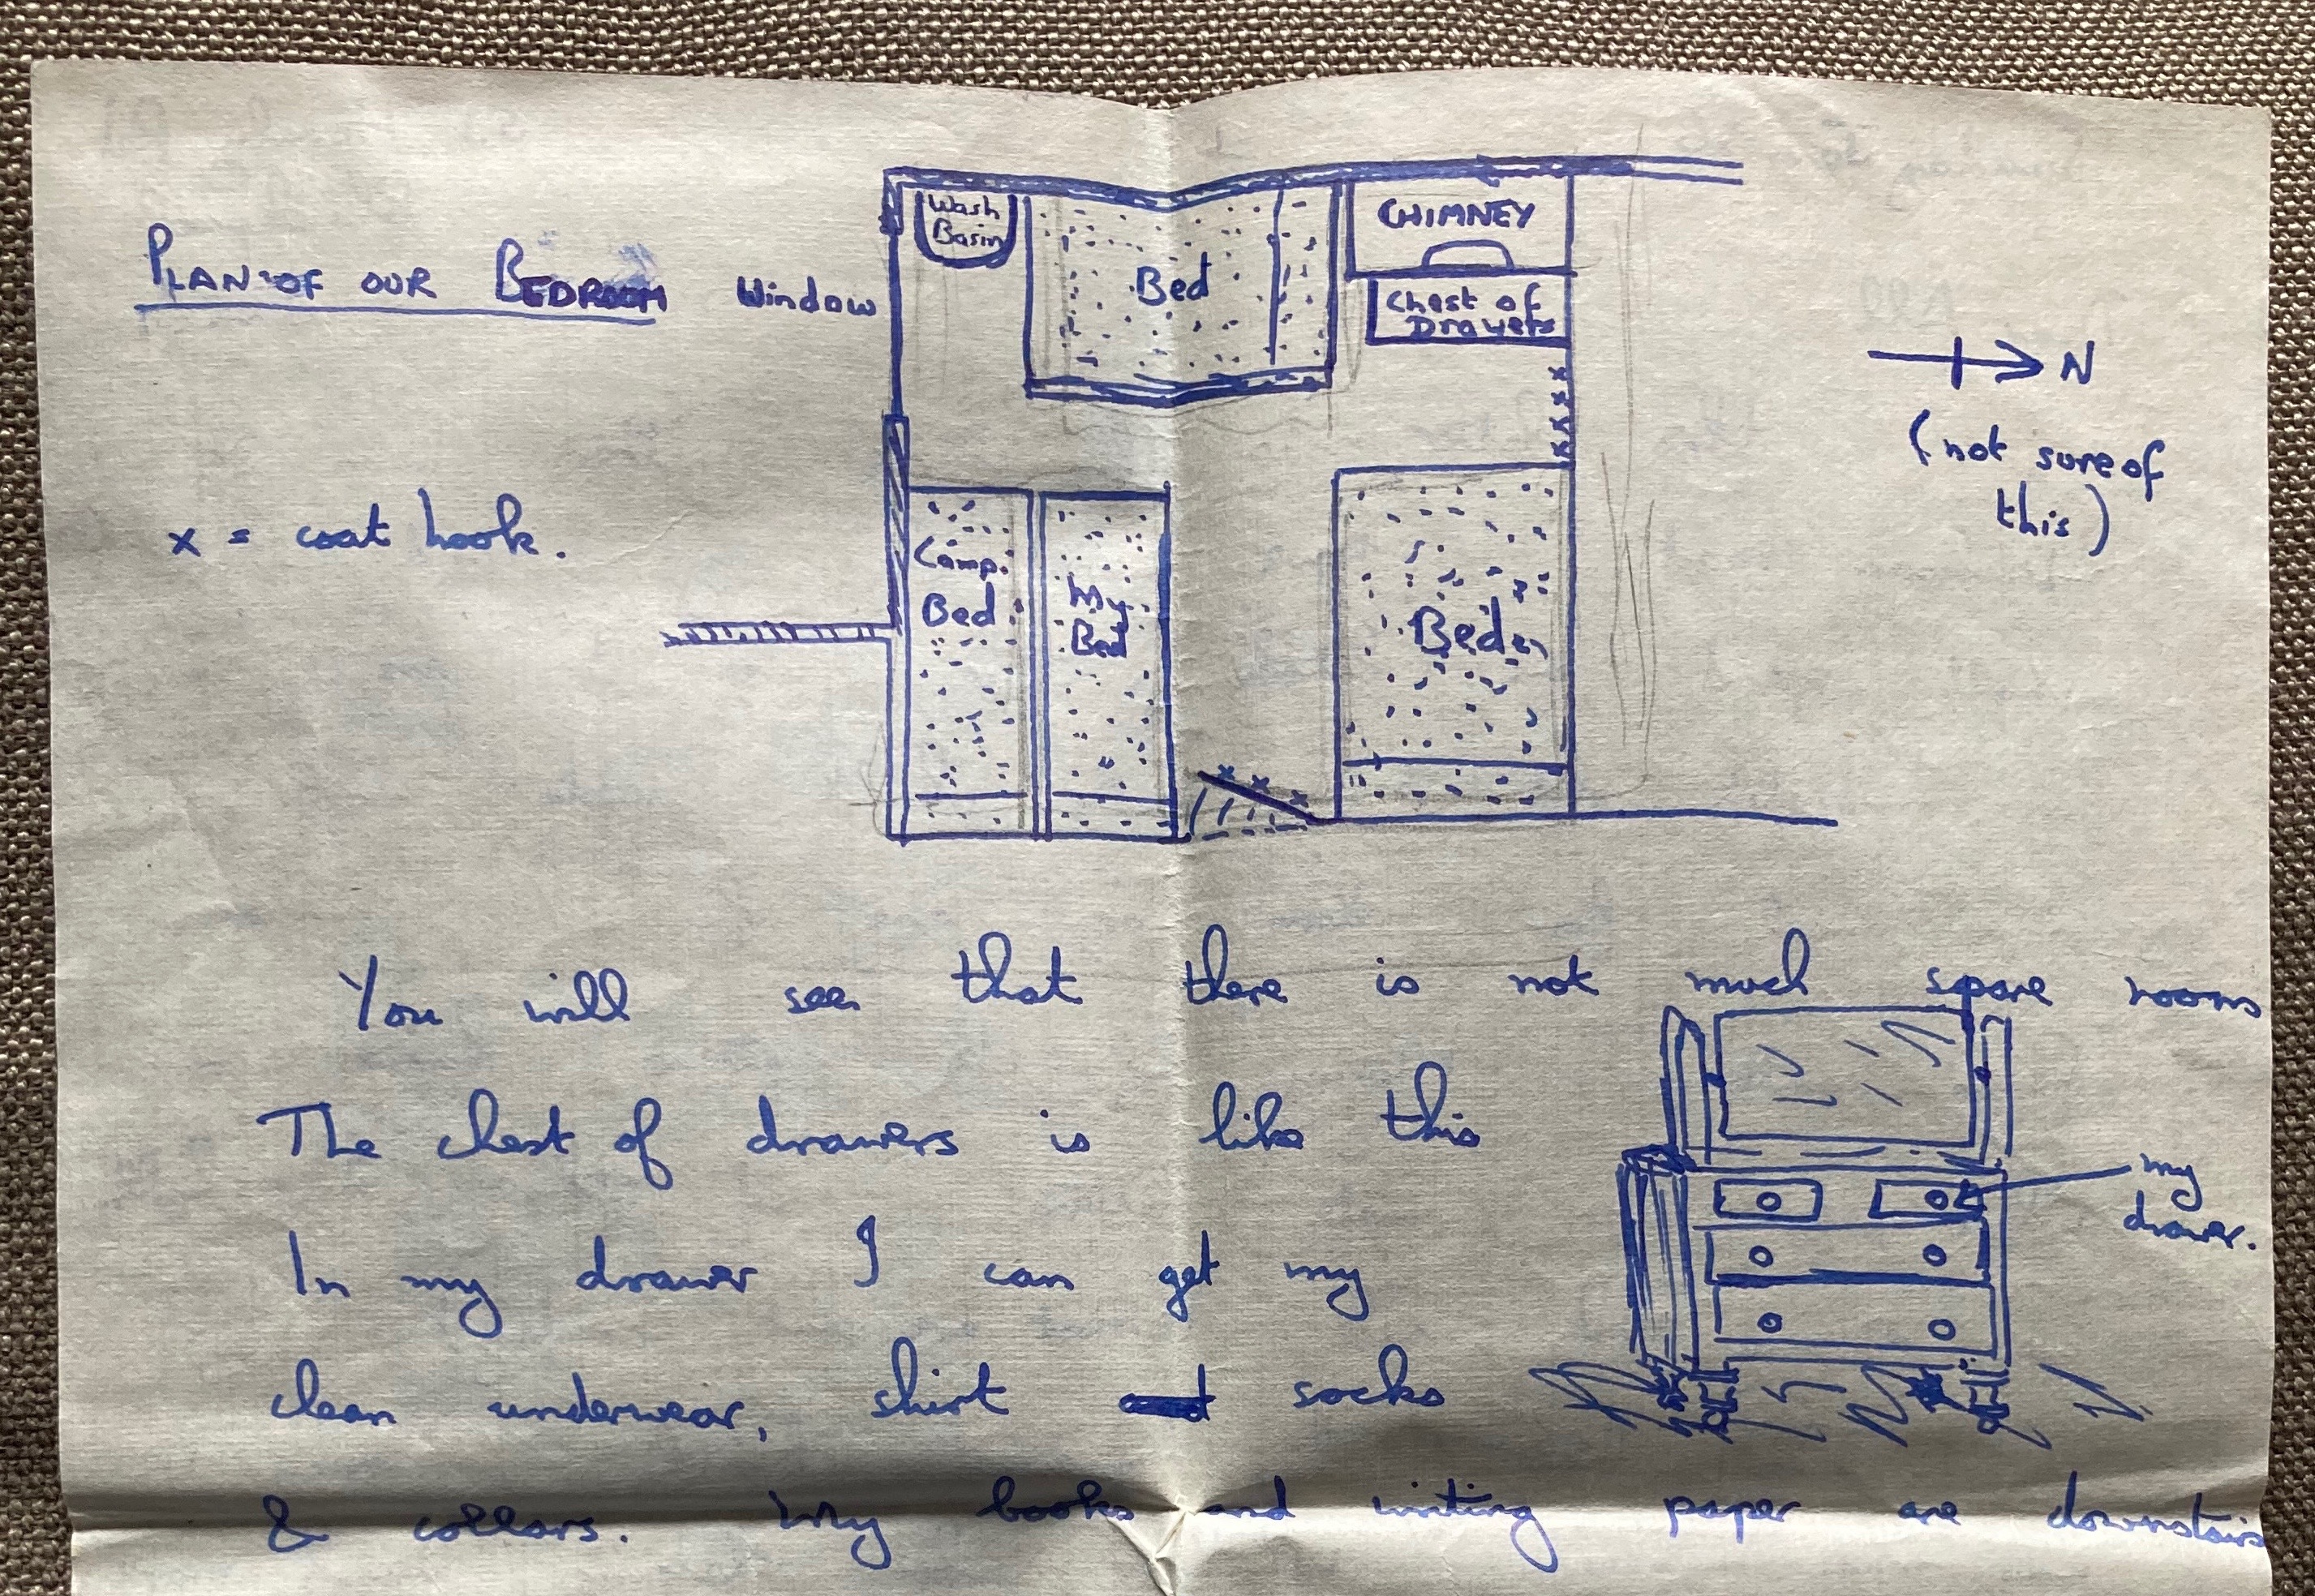 PLAN OF OUR BEDROOM
Window
Wash
Basin
Bed
CHIMNEY
Chest of
Drawers
N
(not sure of
this)
x = coat hook.
Camp.
Bed
My
Bed
Bed
You will see that there is not much spare room
The chest of drawers is like this
my
drawer.
In my drawer I can get my
clean underwear, shirt socks
& collars. My books and writing paper are downstairs